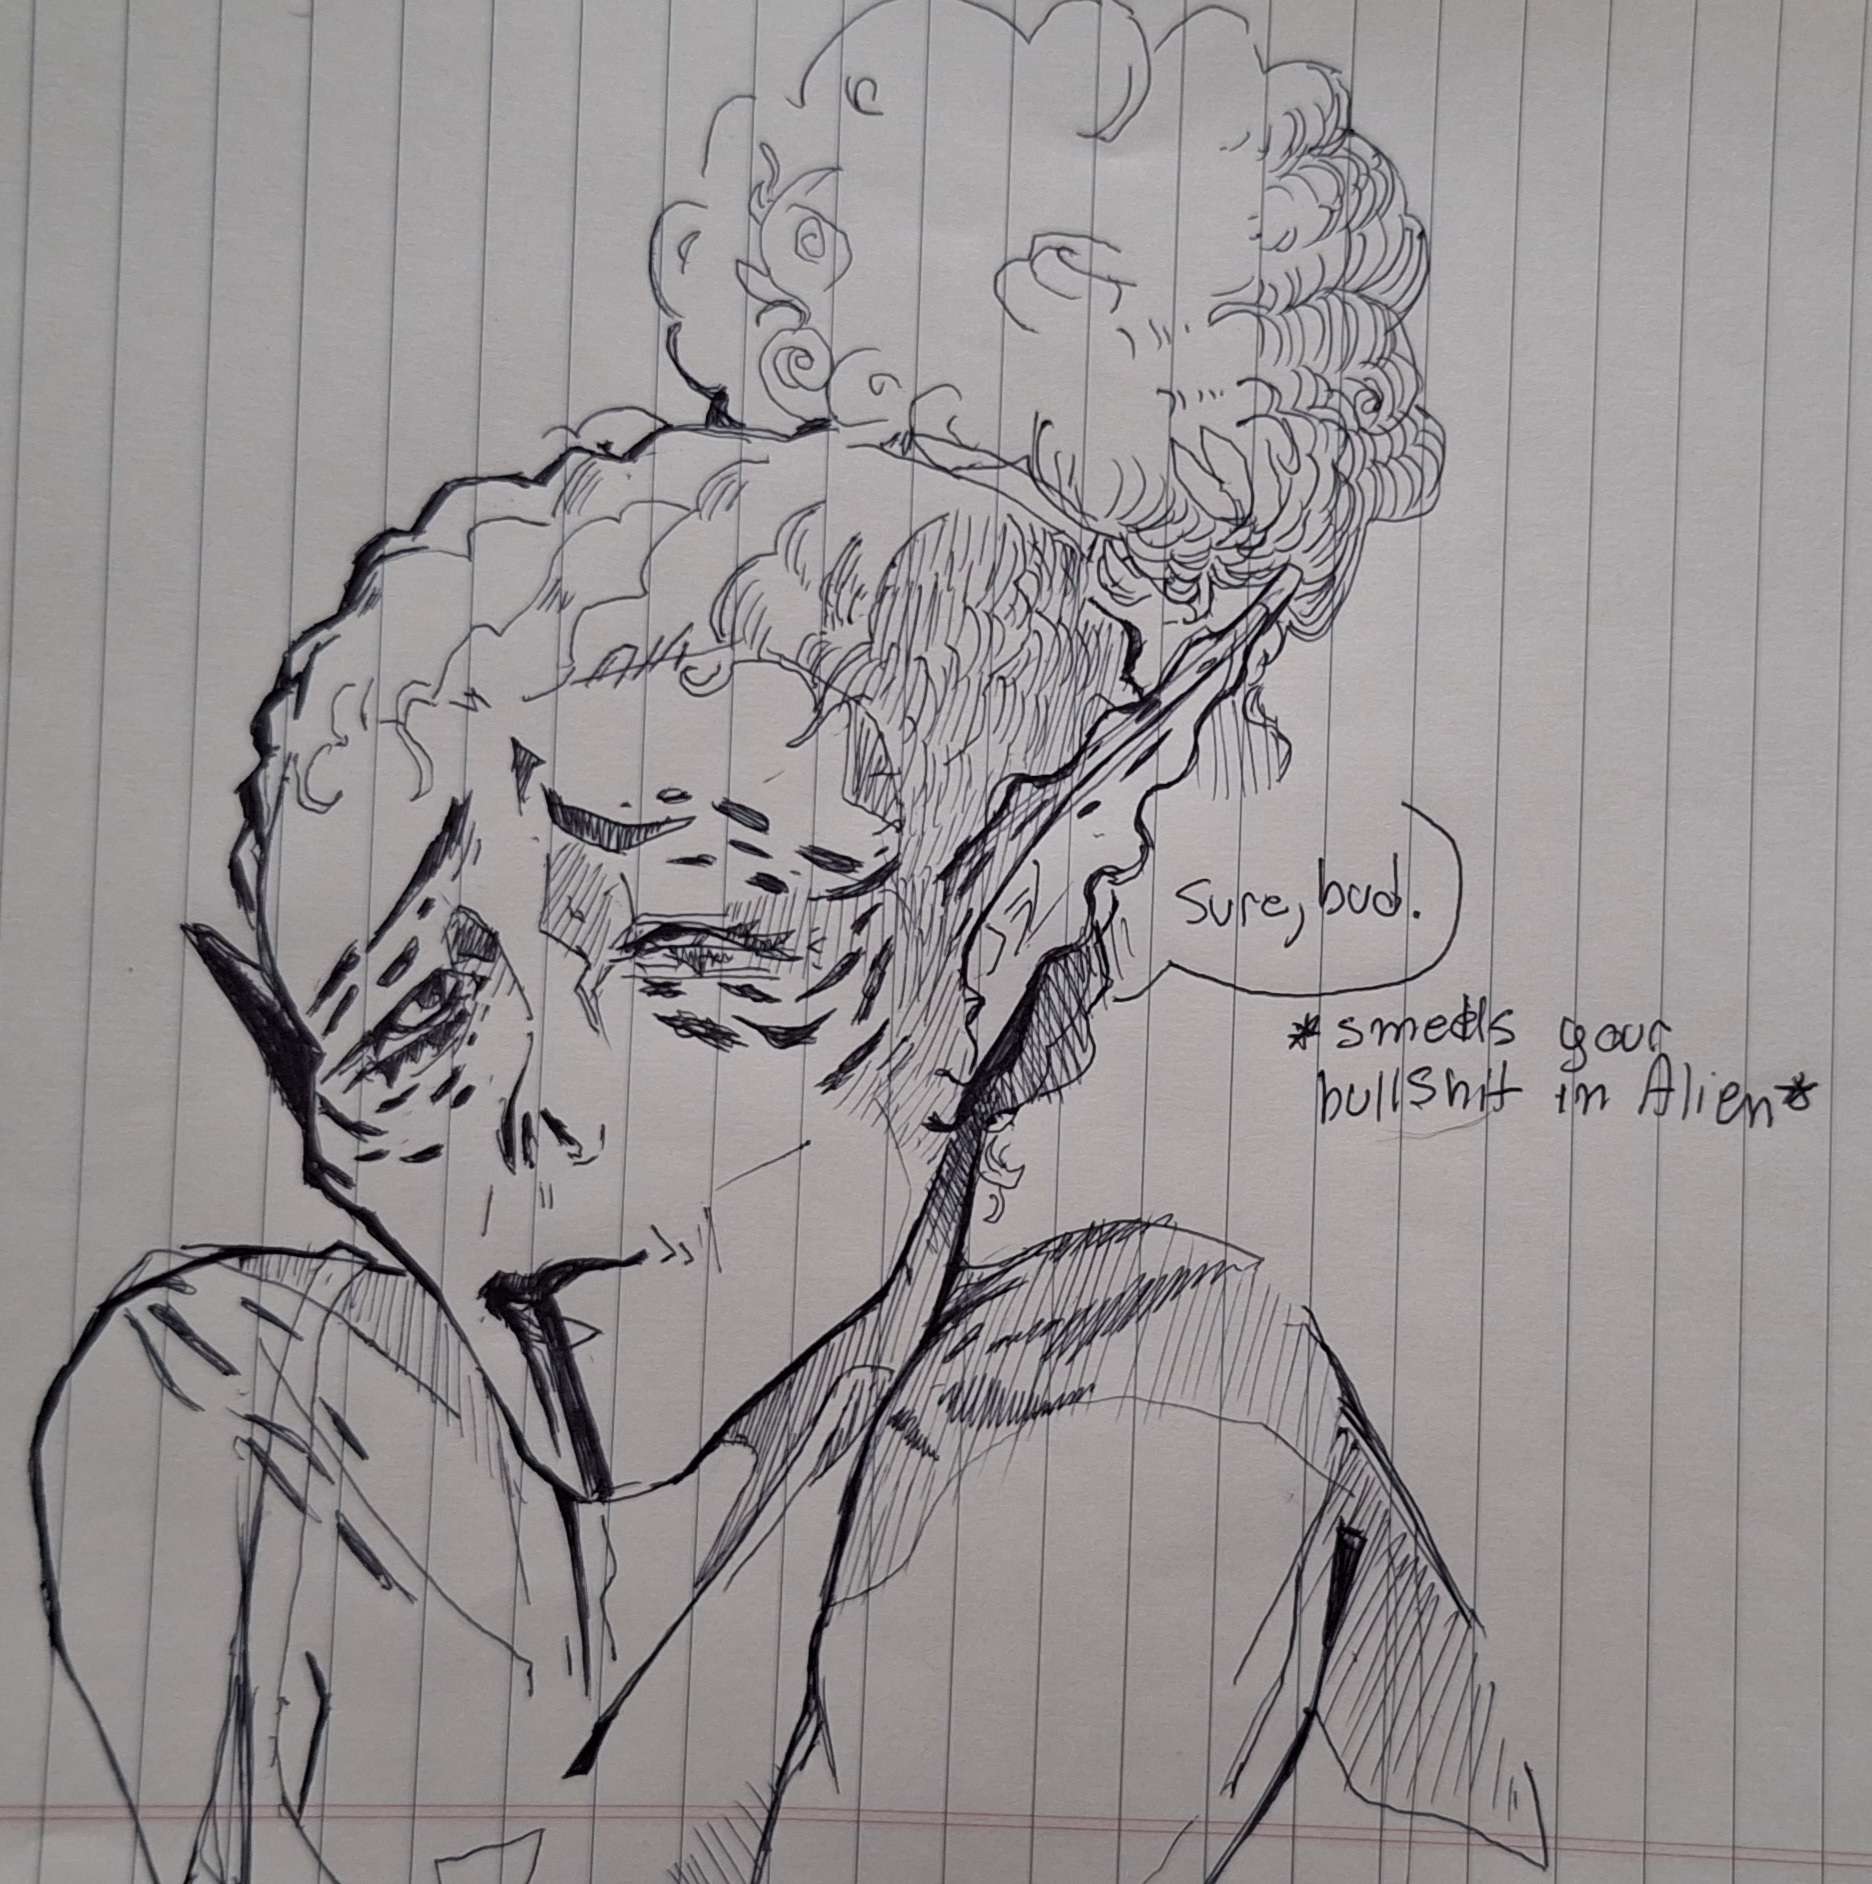 Sure, bud.
*smells your
bullshit in Alien*